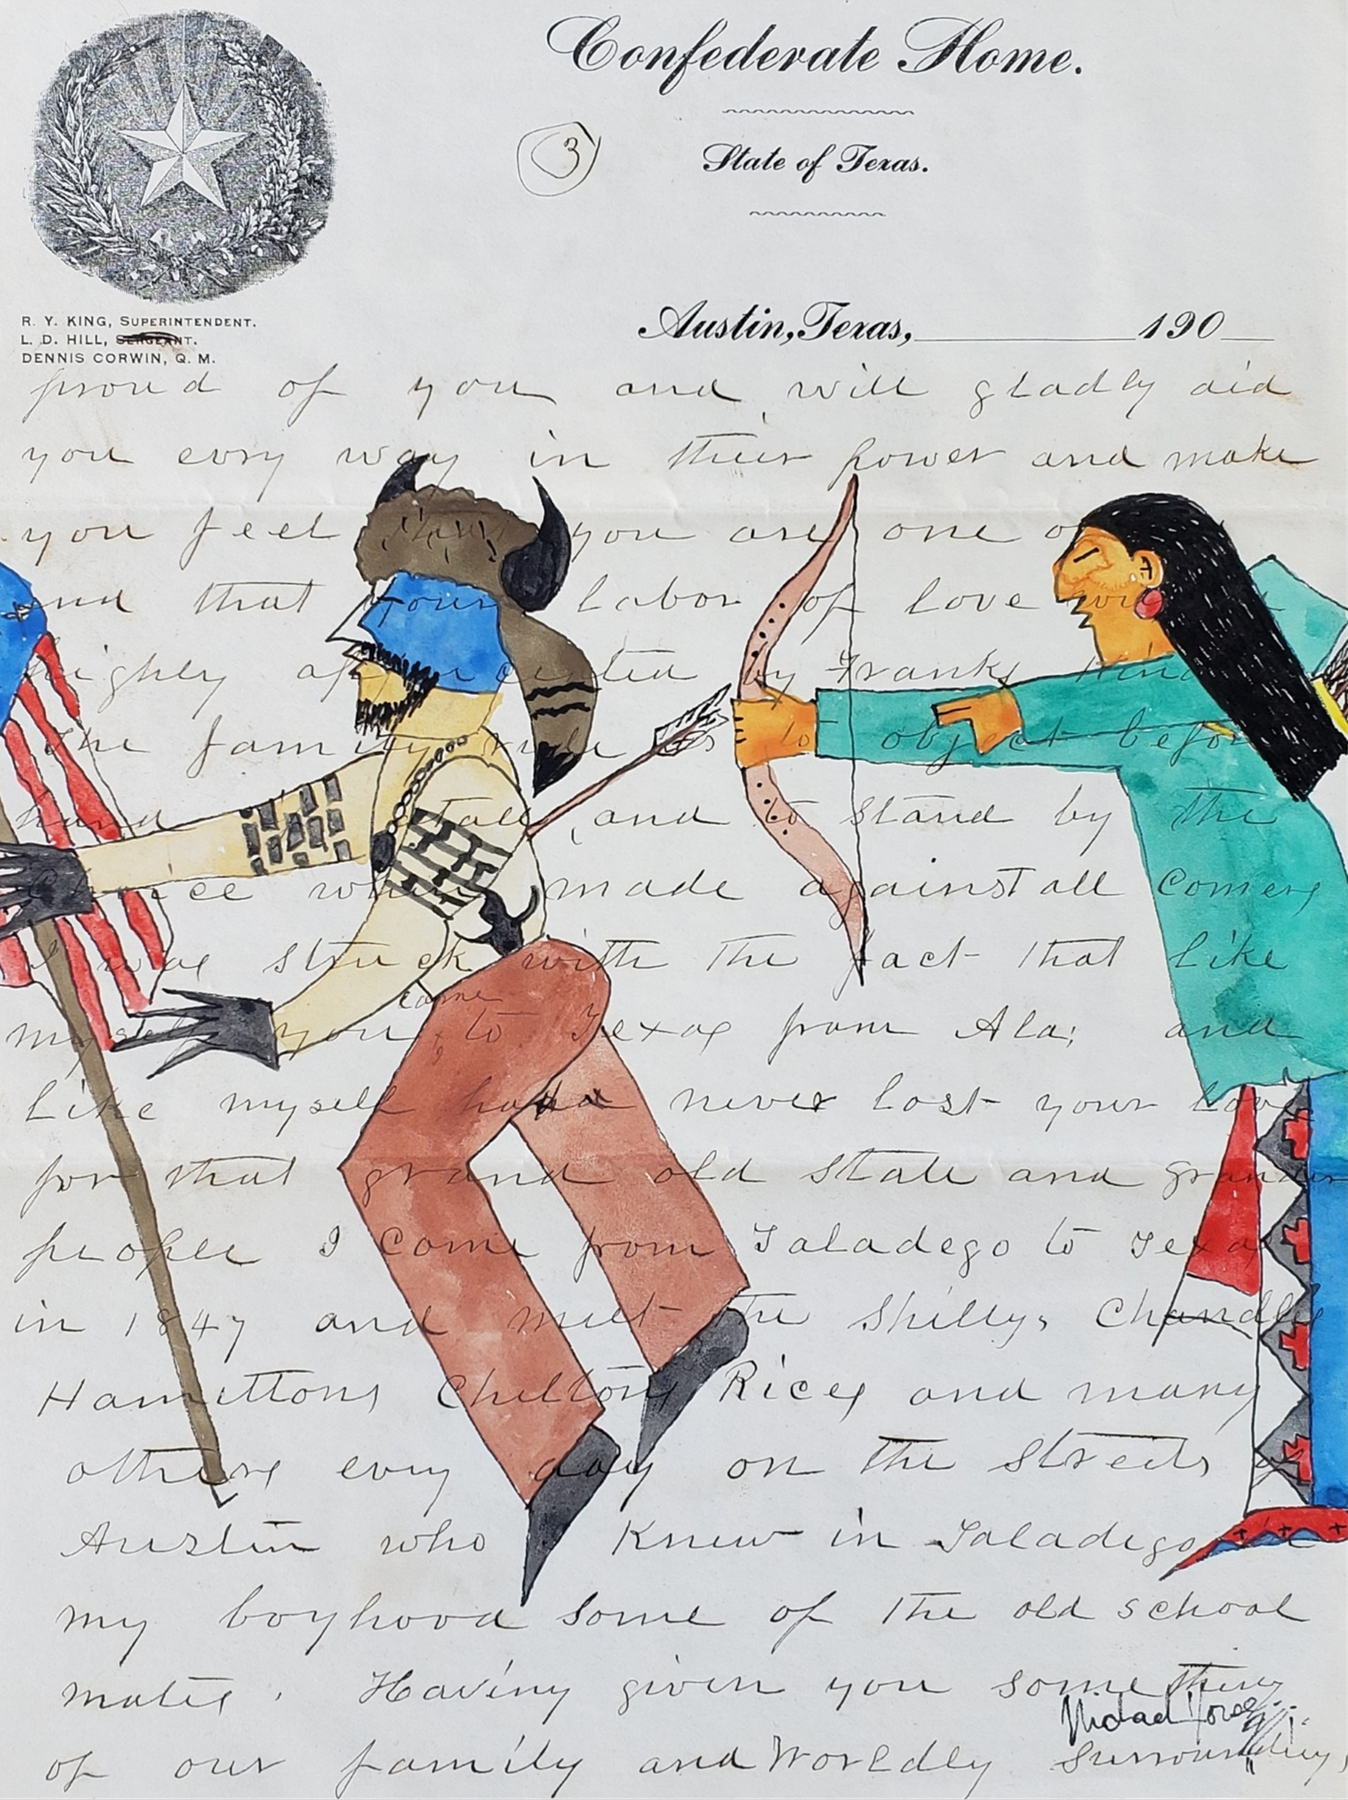 Confederate Home.
3
State of Texas.
R. Y. KING, SUPERINTENDENT.
L. D. HILL, SERGEANT.
DENNIS CORWIN, Q. M.
Austin, Texas, 190
proud of you and will gladly aid
you evry way in their power and make
you feel you are one of
and that your labor of love
highly appreciated by Franks
the family rule is to object before
hand all, and to stand by the
choice when made against all comers
I was struck with the fact that like
came
myself you to Texas from Ala; and
like myself have never lost your love
for that grand old state and grander
people I come from Taladego to Texas
in 1847 and meet the Shellys Chandlers
Hamittons Chiltons Rices and many
others evry day on the streets of
Austin who Knew in Taladego in
my boyhood some of the old school
mates. Having given you something
of our family and Worldly surroundings
Michael Horse